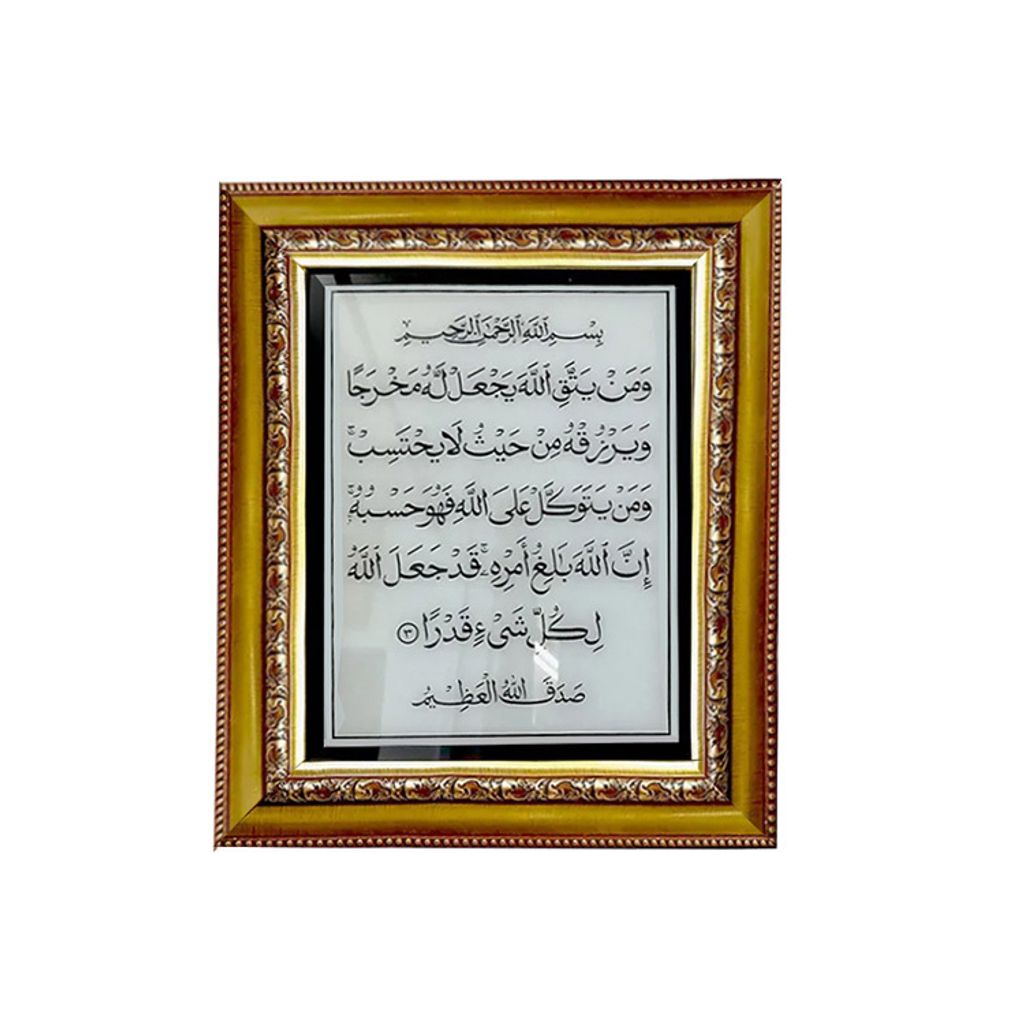 بِسْمِ ٱللَّهِ ٱلرَّحْمَٰنِ ٱلرَّحِيمِ
وَمَنْ يَتَّقِ ٱللَّهَ يَجْعَلْ لَّهُ مَخْرَجًا
وَيَرْزُقْهُ مِنْ حَيْثُ لَا يَحْتَسِبُ ۚ
وَمَنْ يَتَوَكَّلْ عَلَى ٱللَّهِ فَهُوَ حَسْبُهُ ۚ
إِنَّ ٱللَّهَ بَٰلِغُ أَمْرِهِ ۚ قَدْ جَعَلَ ٱللَّهُ
لِكُلِّ شَىْءٍ قَدْرًا ٣
صَدَقَ اللهُ الْعَظِيْمُ